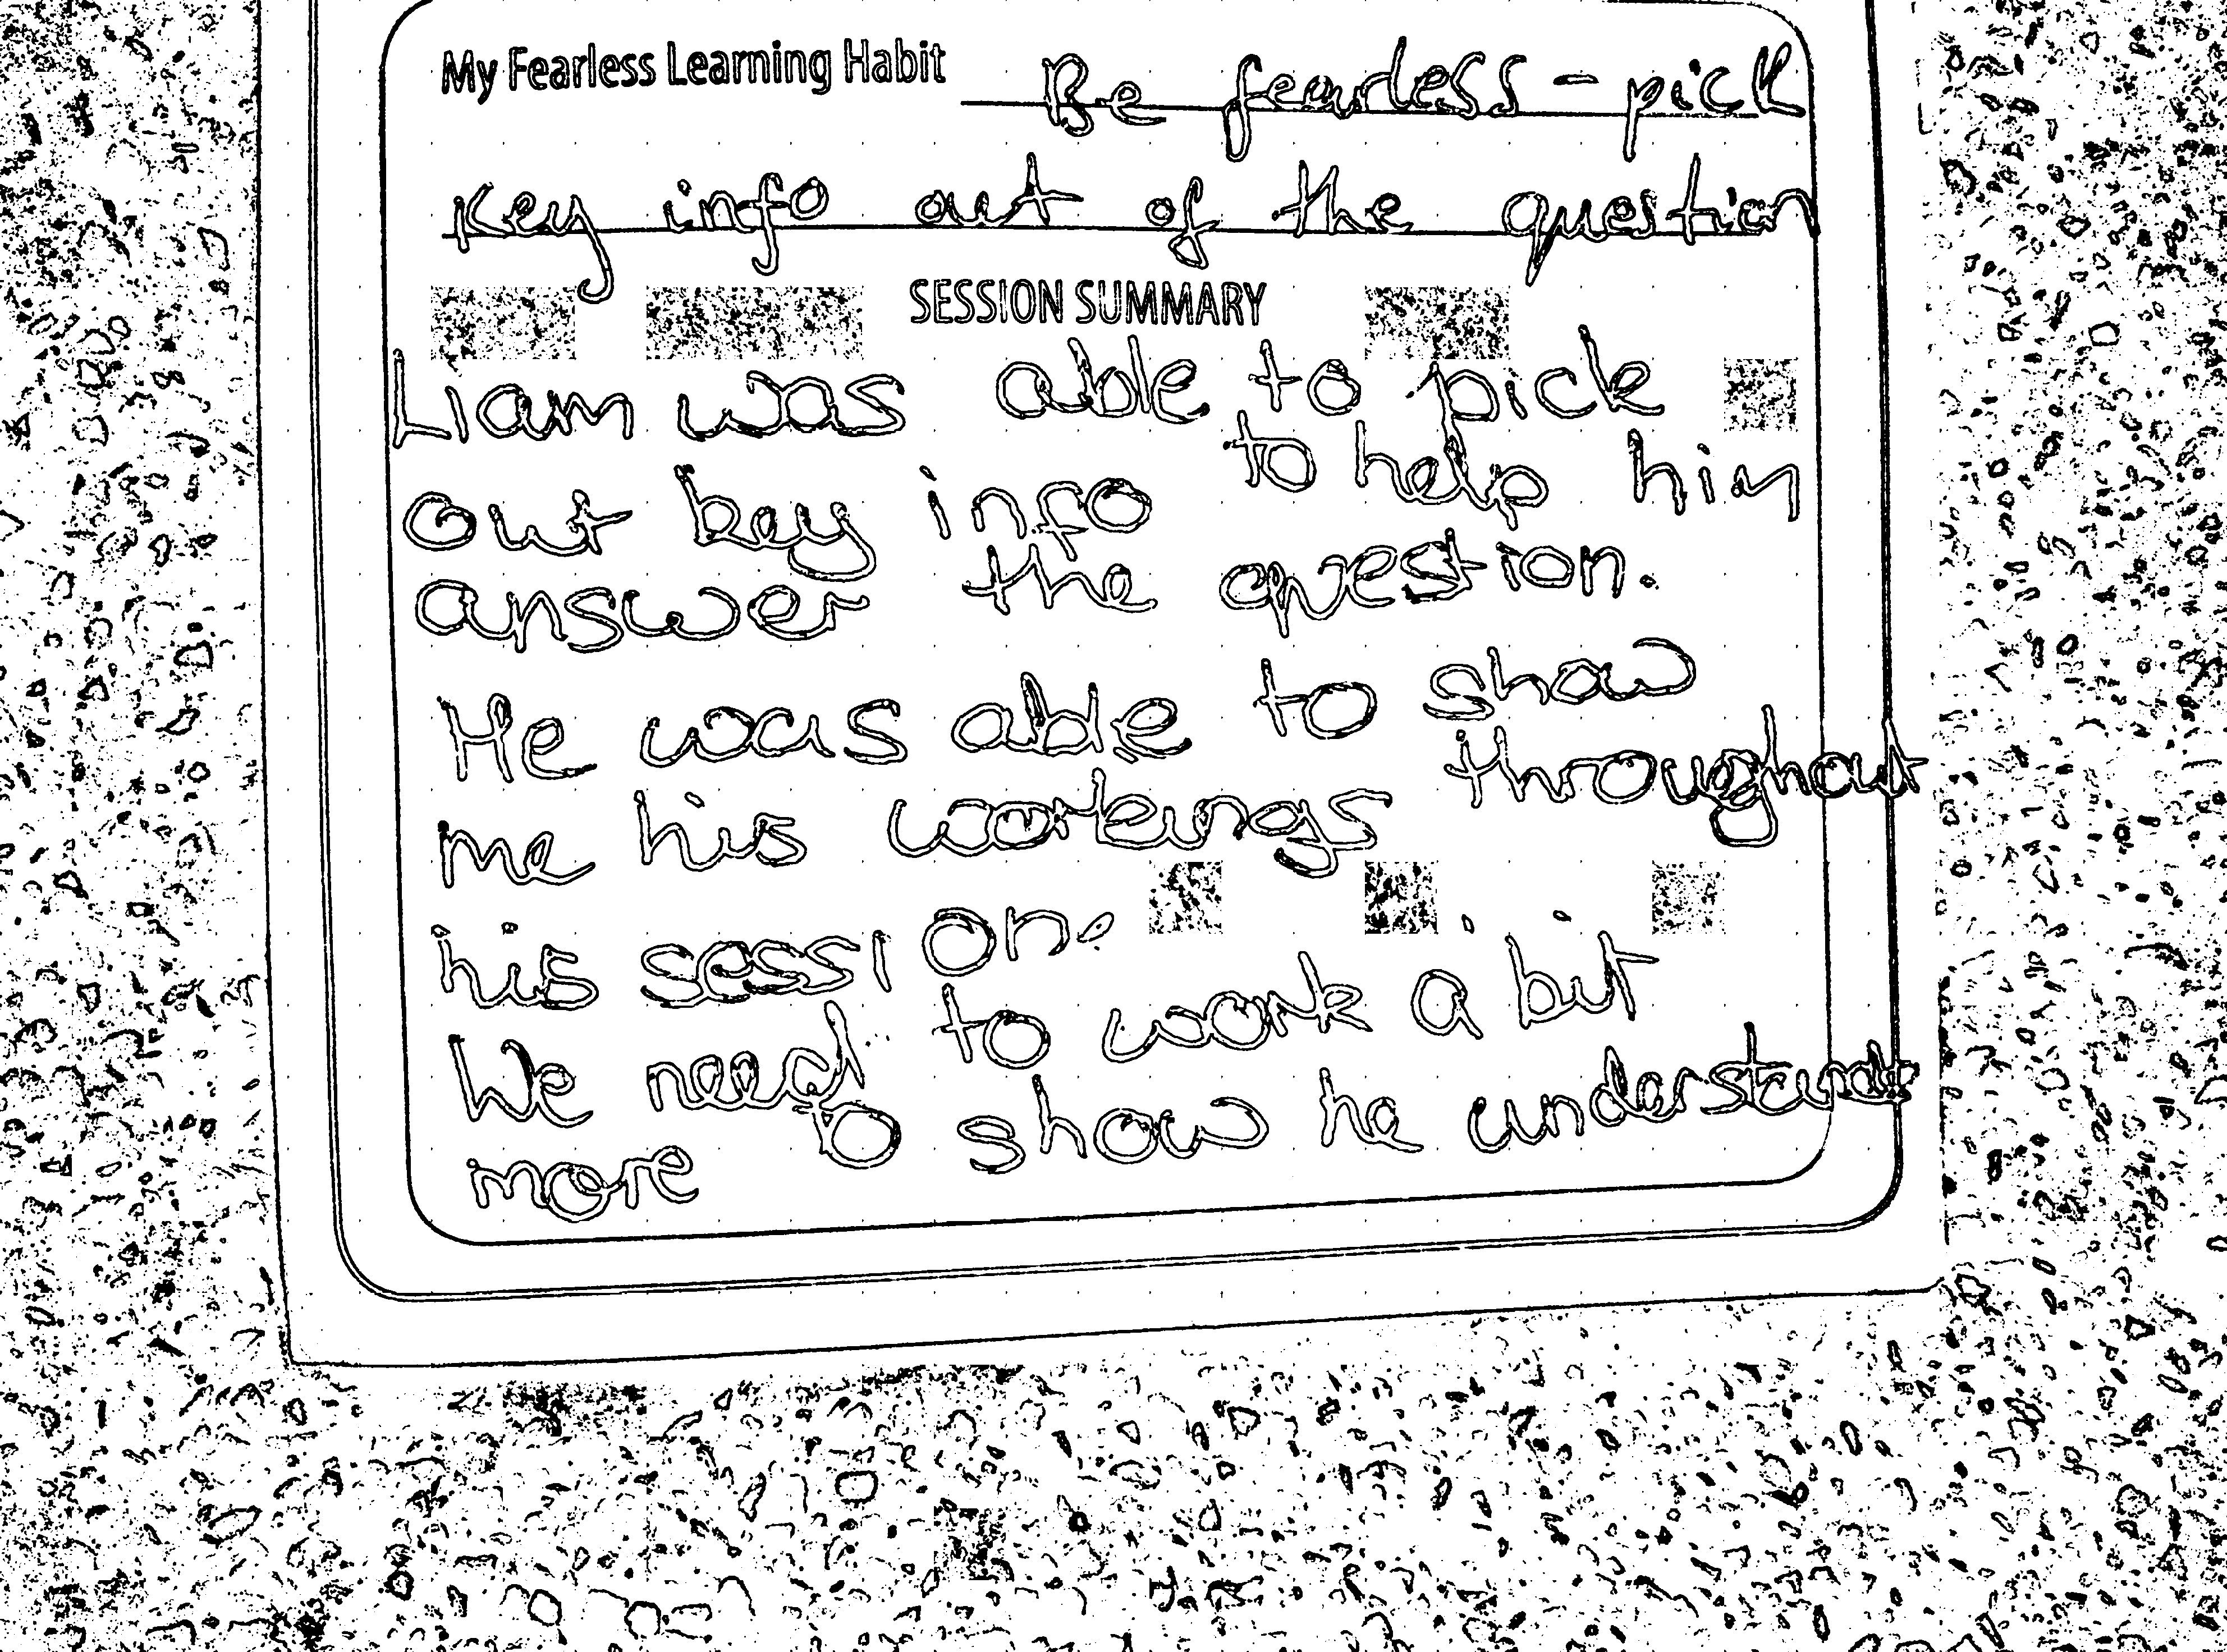 My Fearless Learning Habit Be fearless - pick
key info out of the question
SESSION SUMMARY
Liam was able to pick
out key info to help him
answer the question.
He was able to show
me his workings throughout
his session.
We need to work a bit
more to show he understands